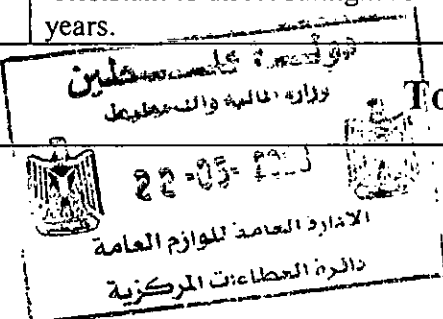 years.
دولة فلسطين
وزارة المالية والتخطيط
To
22-05-
الإدارة العامة للوازم العامة
دائرة العطاءات المركزية